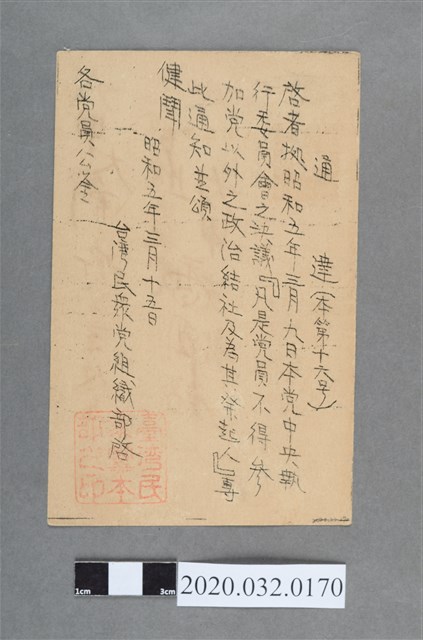 通 達 (本第十六号)
啓者拠昭和五年三月九日本党中央執
行委員會之決議『凡是党員不得参
加党以外之政治結社及為其発起人』專
此通知並頌
健鬪
昭和五年三月十五日
台灣民衆党組織部啓
各党員公鑒
臺灣民
本
部之印
1cm
3cm
2020.032.0170